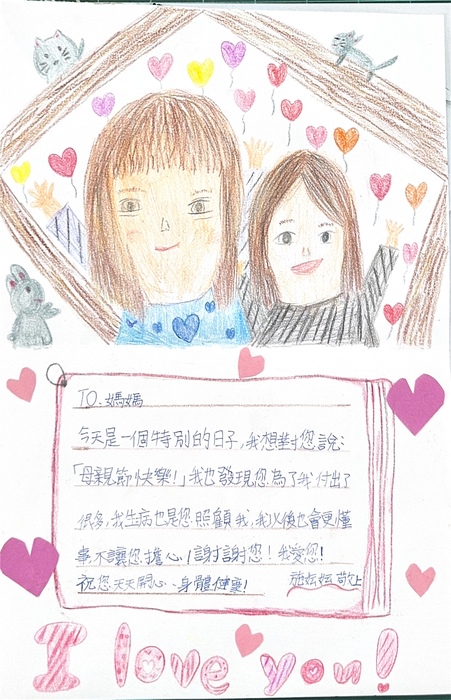 TO.媽媽
今天是一個特別的日子,我想對您說:
「母親節快樂!」我也發現您為了我付出了
很多,我生病也是您照顧我,我以後也會更懂
事不讓您擔心!謝謝您!我愛您!
祝您天天開心、身體健康! 施妘妘 敬上
I love you!